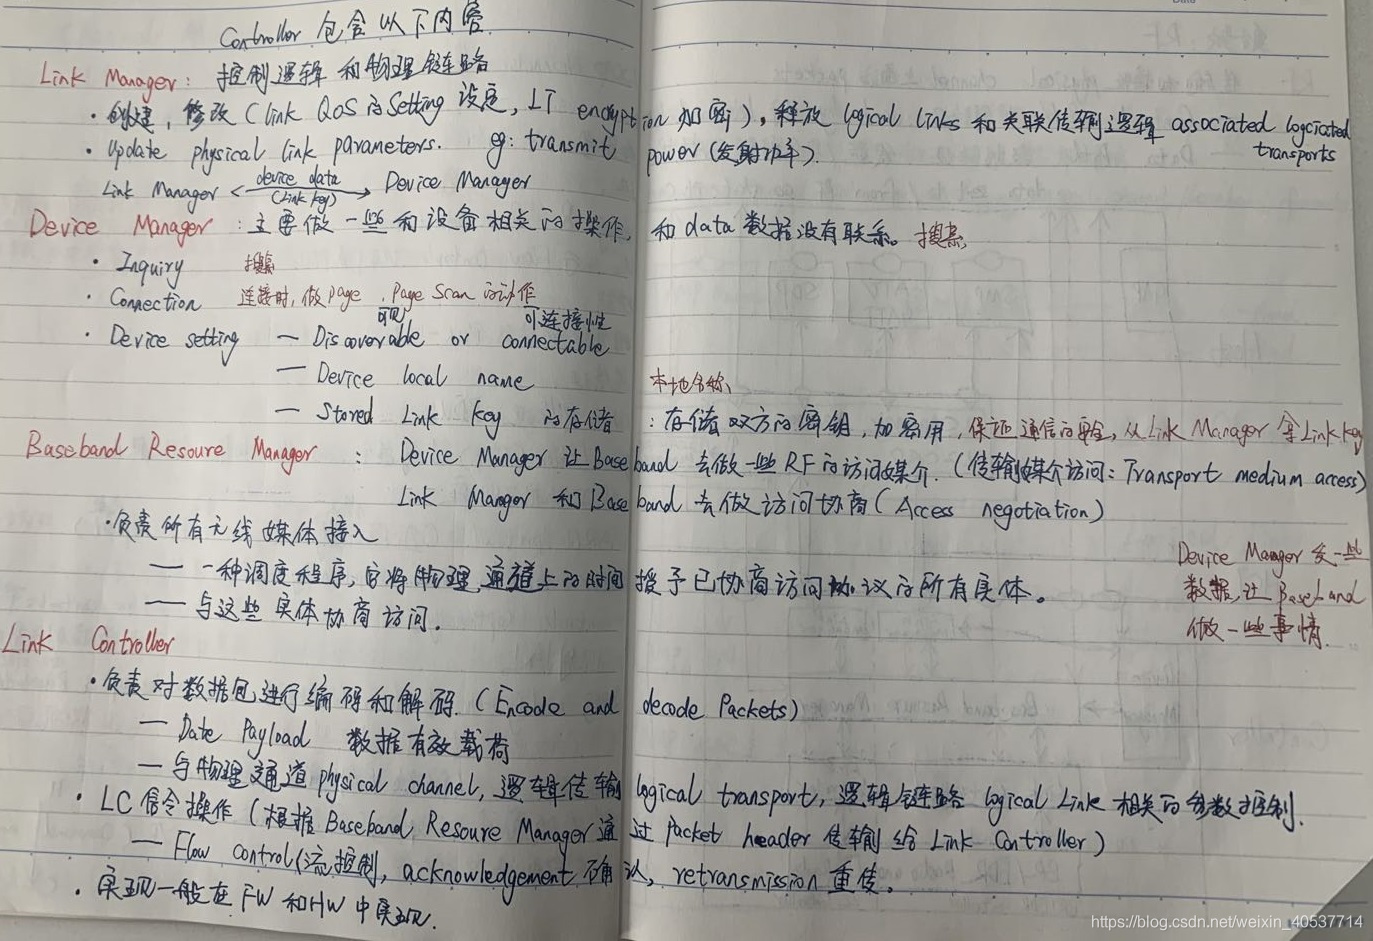 Controller 包含以下内容
Link Manager: 控制逻辑和物理链路
· 创建, 修改(link QoS的Setting 设定, LT encryption 加密), 释放 logical links 和关联传输逻辑 associated logciated
transports
· Update physical link parameters. eg: transmit power (发射功率).
Link Manager device data (Link key) Device Manager
Device Manager: 主要做一些和设备相关的操作, 和data数据没有联系。 搜索,
· Inquiry 搜索
· Connection 连接时, 做page, Page Scan的动作
可见 可连接性
· Device setting — Discoverable or connectable
— Device local name 本地名称、
— Stored Link key 的存储 : 存储双方的密钥, 加密用, 保证通信的安全, 从Link Manager 拿Link key
Baseband Resoure Manager : Device Manager 让Baseband 去做一些RF的访问媒介. (传输媒介访问: Transport medium access)
Link Manager 和Baseband 去做访问协商(Access negotiation)
· 负责所有无线媒体接入
— 一种调度程序, 它将物理通道上的时间授予已协商访问协议的所有实体。
— 与这些实体协商访问.
Device Manager 发一些
数据, 让Baseband
做一些事情.
Link Controller
· 负责对数据包进行编码和解码. (Encode and decode Packets)
— Date Payload 数据有效载荷
— 与物理通道physical channel, 逻辑传输logical transport, 逻辑链路 logical Link 相关的参数控制.
· LC信令操作(根据Baseband Resoure Manager通过Packet header 传输给Link Controller)
— Flow control(流控制, acknowledgement确认, retransmission重传。
· 实现一般在FW和HW中实现.
https://blog.csdn.net/weixin_40537714